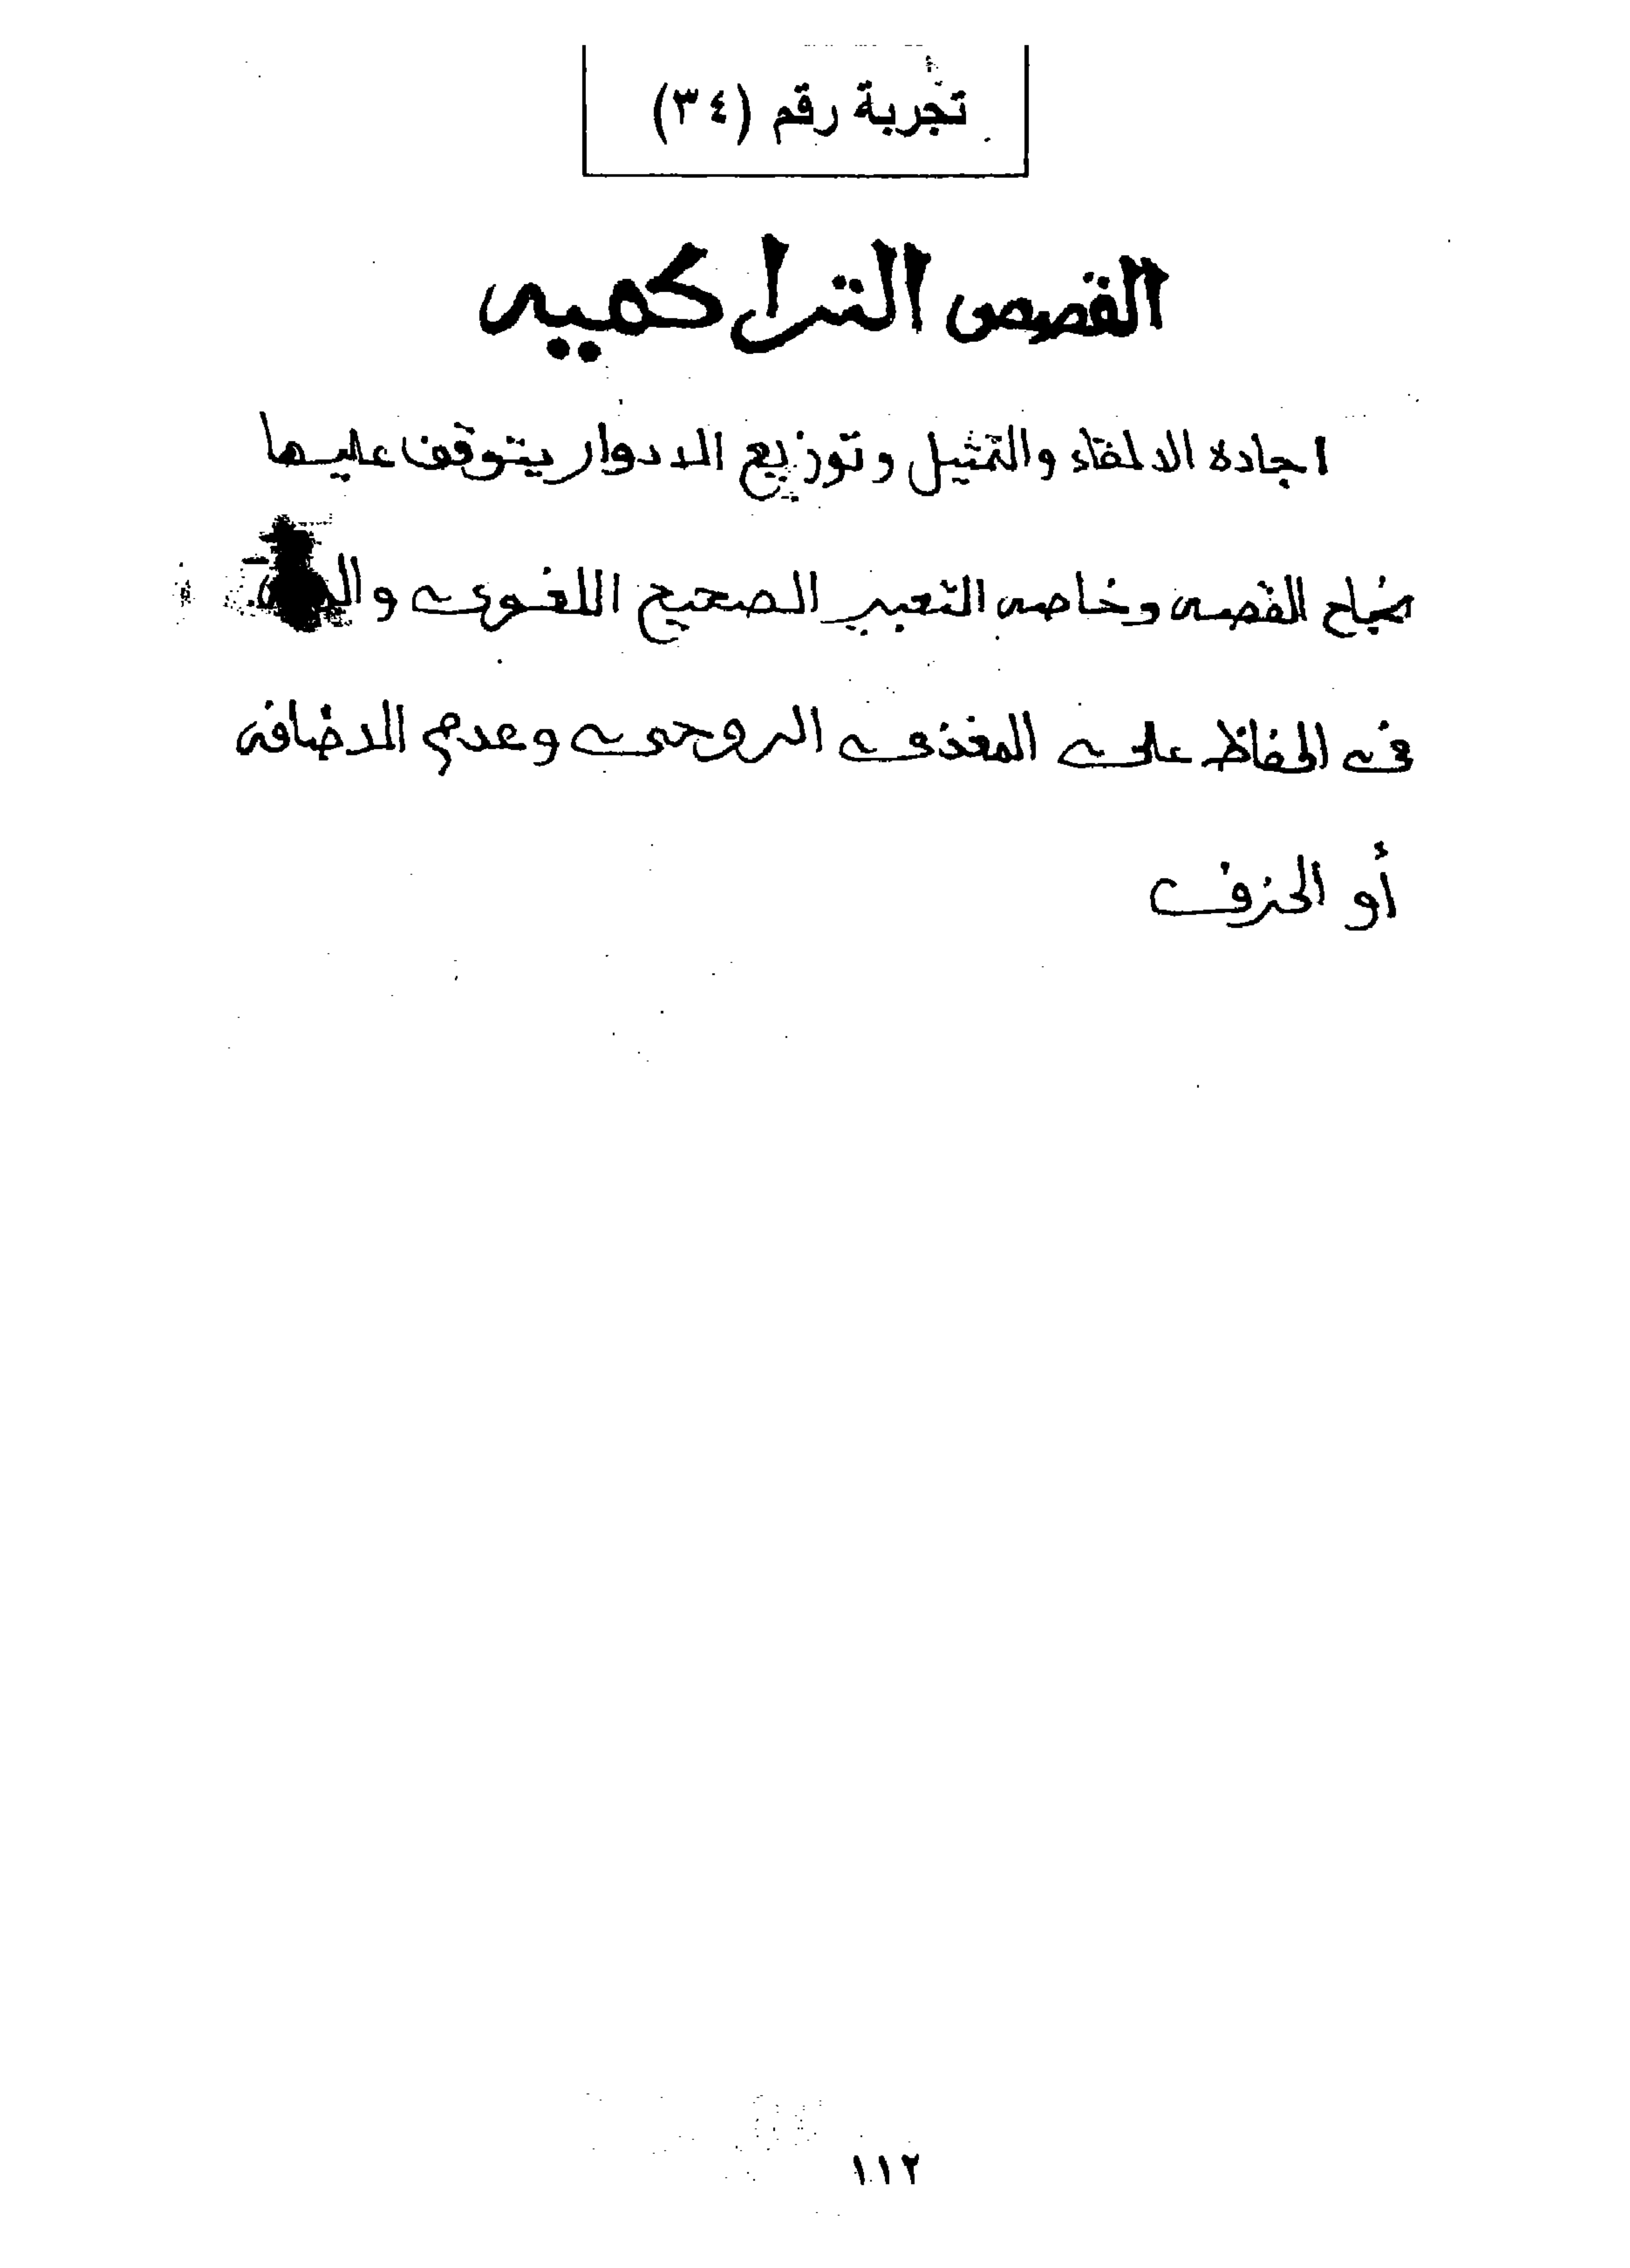 تجربة رقم (٣٤)
القصص التراكميه
اجاده الالقاء والتمثيل وتوزيع الادوار يتوقف عليها
نجاح القصه وخاصه التعبير الصحيح اللغوى
فى الحفاظ على المغذى الروحى وعدم الاضافه
أو الحزف
١١٢